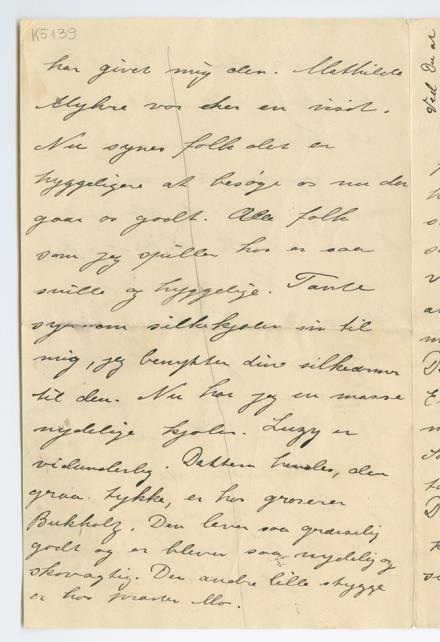 K5139
har givet mig den. Mathilde
Myhre var her en visit.
Nu synes folk det er
hyggeligere at besøge os nu der
gaar os godt. Alle folk
som jeg spiller hos er saa
snille og hyggelige. Tante
syr om silkekjolen min til
mig, jeg benytter dine silkeærmer
til den. Nu har jeg en masse
nydelige kjoler. Luzy er
vidunderlig. Datteren hendes, den
graa tykke, er hos groserer
Bukholz. Den lever saa græsselig
godt og er blever saa nydelig og
skovagtig. Den andre lille stygge
er hos prester Mo.
Ved Du at